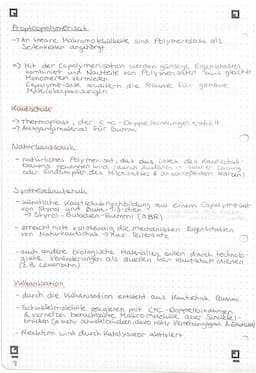 Propfcopolymerisat
→ An lineare Makromolekülkette sind Polymerblöcke als
Seitenketten angehängt
⇒ Mit der Copolymerisation werden günstige Eigenschaften
kombiniert und Nachteile von Polymerisaten aus gleichen
Monomeren vermieden
Copolymerisate erweitern die Räume für genaue
Materialanpassungen
Kautschuk
→ Thermoplast, der C=C-Doppelbindungen enthält
→ Ausgangsmaterial für Gummi
Naturkautschuk
- natürliches Polymerisat, das aus Latex des Kautschuk-
baums gewonnen wird (durch Ausfällen in saurer Lösung
oder Eindampfen des Milchsaftes & anschließenden Walzen)
Synthesekautschuk
- künstliche Kautschuknachbildung aus einem Copolymerisat
von Styrol und Buta-1,3-dien
→ Styrol-Butadien-Gummi (SBR)
- erreicht nicht vollständig die mechanischen Eigenschaften
von Naturkautschuk → nur Teilersatz
- auch andere biologische Materialien sollen durch technolo-
gische Veränderungen als Quellen für Kautschuk dienen
(z.B. Löwenzahn)
Vulkanisation
- durch die Vulkanisation entsteht aus Kautschuk Gummi
- Schwefelmoleküle reagieren mit C=C-Doppelbindungen
& vernetzen benachbarte Makromoleküle über Schwefel-
brücken (je mehr Schwefelbrücken, desto höher Vernetzungsgrad &
- Reaktion wird durch Katalysator aktiviert
8